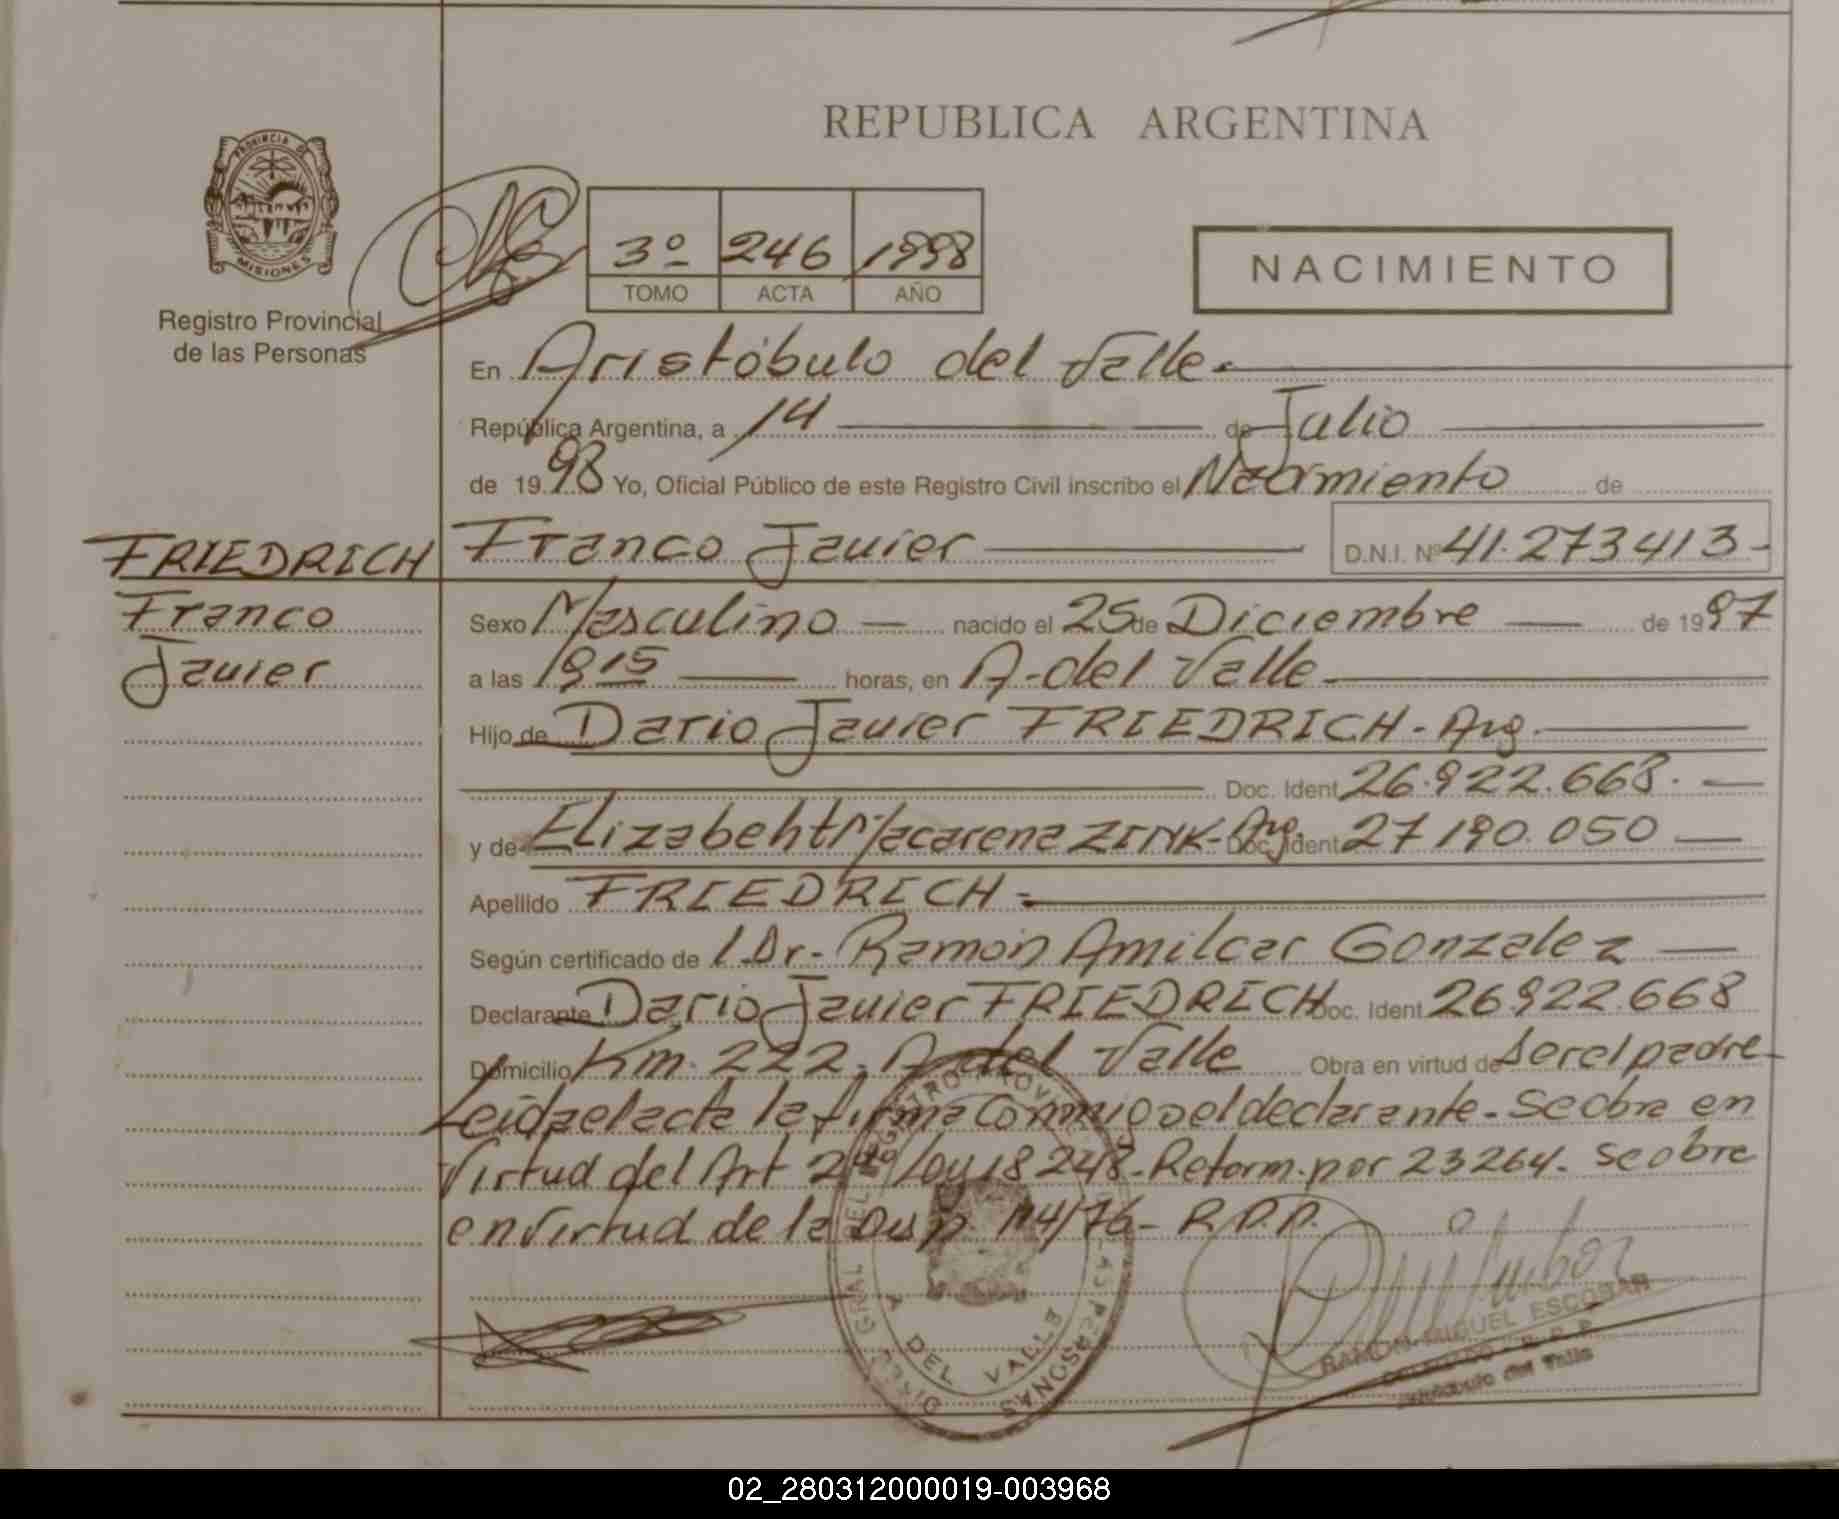 REPUBLICA ARGENTINA
PROVINCIA DE
MISIONES
Registro Provincial
de las Personas
3º 246 1998
TOMO ACTA AÑO
NACIMIENTO
En Aristóbulo del Valle.-
República Argentina, a 14 de Julio
de 1998 Yo, Oficial Público de este Registro Civil inscribo el Nacimiento de
FRIEDRICH
Franco
Javier
Franco Javier D.N.I. Nº 41.273413-
Sexo Masculino nacido el 25 de Diciembre de 1997
a las 1915 horas, en A-del Valle
Hijo de Dario Javier FRIEDRICH - Arg.
Doc. Ident 26.922.668.
y de Elizabeht Macarena ZINK - Arg. Doc. Ident 27190.050
Apellido FRIEDRICH -
Según certificado de l Dr- Ramón Amilcar Gonzalez
Declarante Dario Javier FRIEDRICH Doc. Ident 26922.668
Domicilio Km. 222. A del Valle Obra en virtud de ser el padre
Leida el acta la firma Conmigo el declarante - Se obra en
Virtud del Art 2do Ley 18248- Reform. por 23264. se obra
en Virtud de la Disp. 114/76 - R.P.P.
REGISTRO PROV. LAS PERSONAS
A DEL VALLE
RAMON MIGUEL ESCOBAR
DELEGADO - R. P. P.
Aristóbulo del Valle
02_280312000019-003968